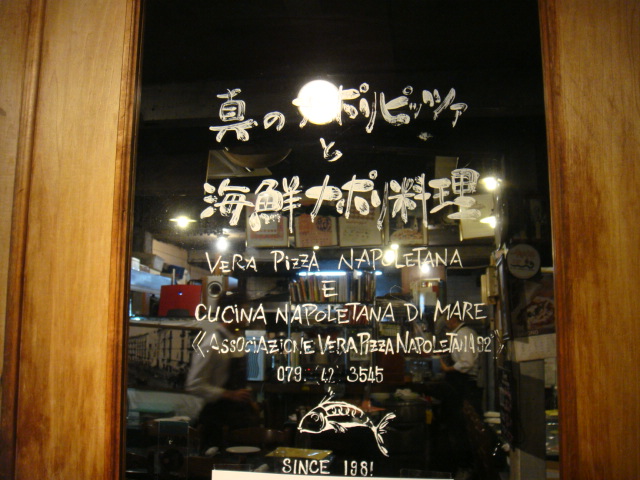 真のナポリピッツァ
と
海鮮ナポリ料理
VERA PIZZA NAPOLETANA
E
CUCINA NAPOLETANA DI MARE
《ASSOCIAZIONE VERA PIZZA NAPOLETANA 92》
079 42 3545
SINCE 1981